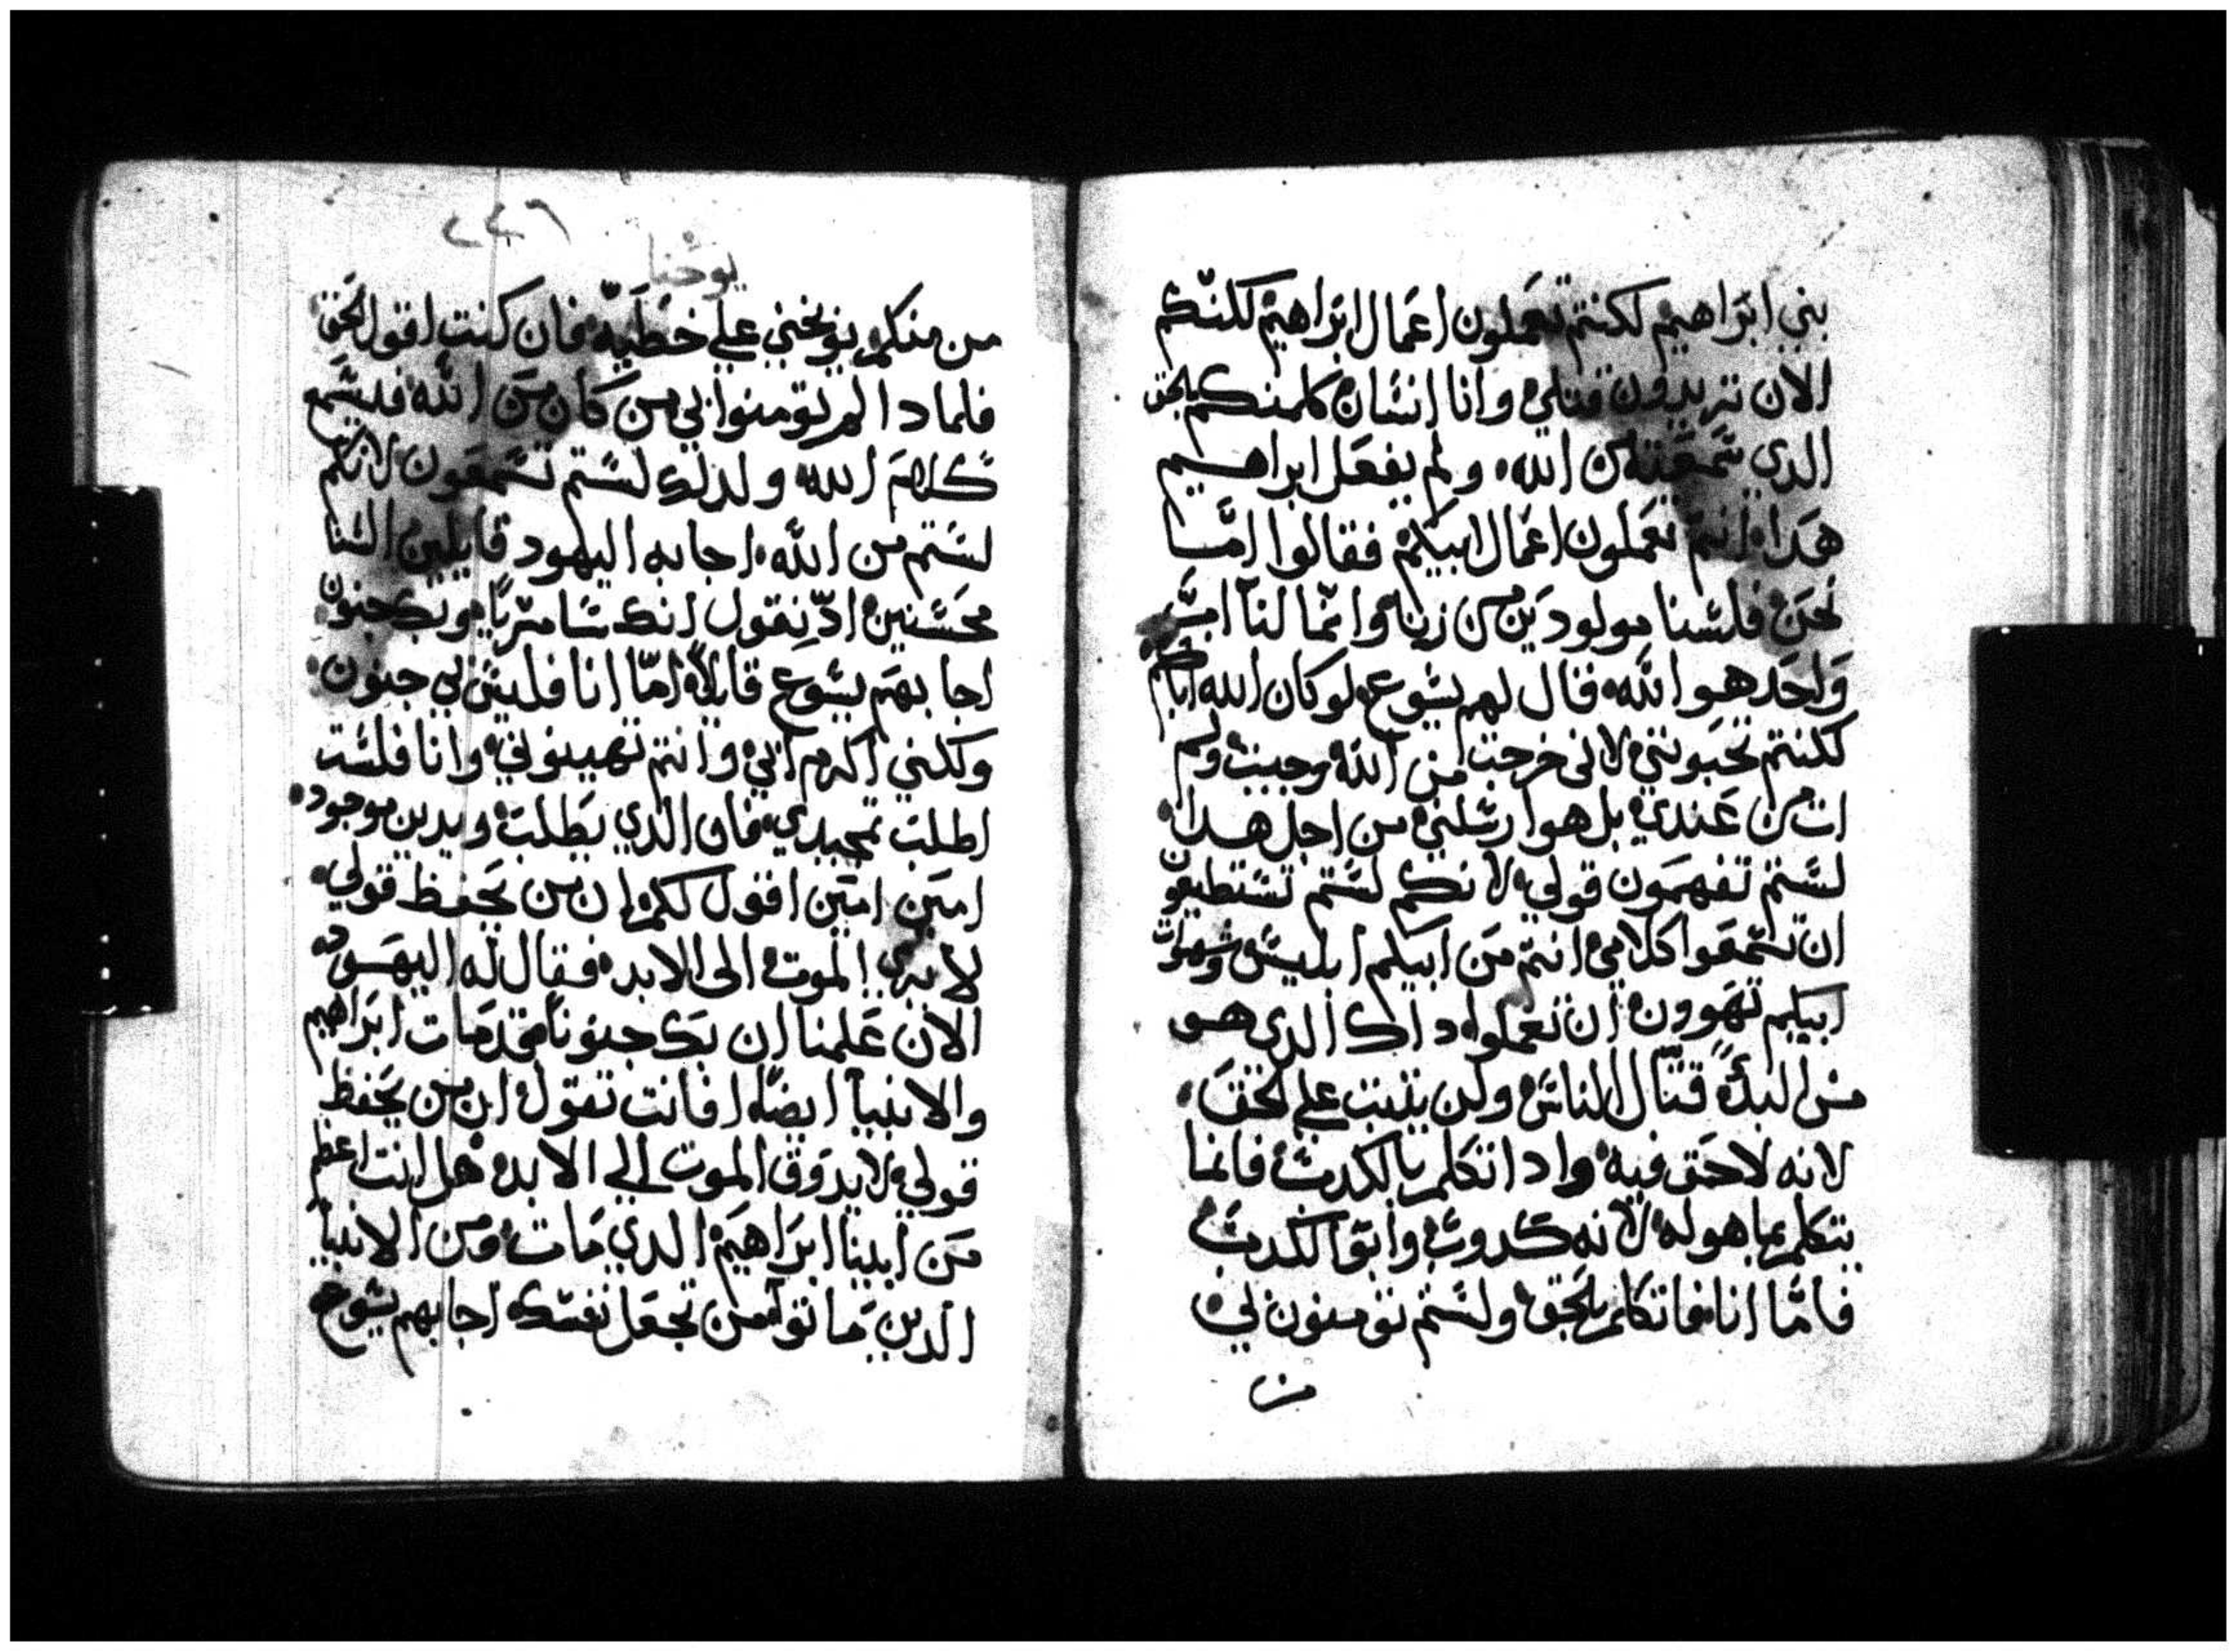 بني ابراهيم لكنتم تعملون اعمال ابراهيم لكنكم
الان تريدون قتلي وانا انسان كلمتكم بالحق
الدي سمعته من الله ولم يفعل ابراهيم
هدا انتم تعملون اعمال ابيكم فقالوا امّا
نحن فلسنا مولودين من زنا وانّما لنا اب
واحد هو الله فقال لهم يشوع لو كان الله اباكم
لكنتم تحبونني لاني خرجت من الله وجيت ولم
ات من عندي بل هو ارسلني من اجل هدا
لستم تفهمون قولي لانكم لستم تستطيعون
ان تسمعوا كلامي انتم من ابيكم ابليس وشهوات
ابيكم تهوون ان تعملوا داك الدي هو
من البدء قتّال الناس ولن يثبت على الحق
لانه لا حق فيه وادا تكلم بالكدب فانما
يتكلم بما هو له لانه كدوب وابو الكدب
فامّا انا فاتكلم بالحق ولستم تومنون لي
من
٢٤٦
يوحنا
من منكم يوبخني على خطيّه فان كنت اقول الحق
فلمادا لم تومنوا بي من كان من الله فليسمع
كلام الله ولدلك لستم تسمعون لانكم
لستم من الله اجابه اليهود قايلين السنا
محسنين اد نقول انك سامريًا وبك جنون
اجابهم يشوع قايلاً امّا انا فليس بي جنون
ولكني اكرم ابي وانتم تهينوني وانا فلست
اطلب تمجيدي فان الدي يطلب ويدين موجود
امين امين اقول لكم ان من يحفظ قولي
لا يرى الموت الى الابد فقال له اليهود
الان علمنا ان بك جنونا قد مات ابراهيم
والانبيا ايضًا افانت تقول ان من يحفظ
قولي لا يدوق الموت الي الابد هل انت اعظم
من ابينا ابراهيم الدي مات ومن الانبيا
الدين ماتوا من تجعل نفسك اجابهم يشوع